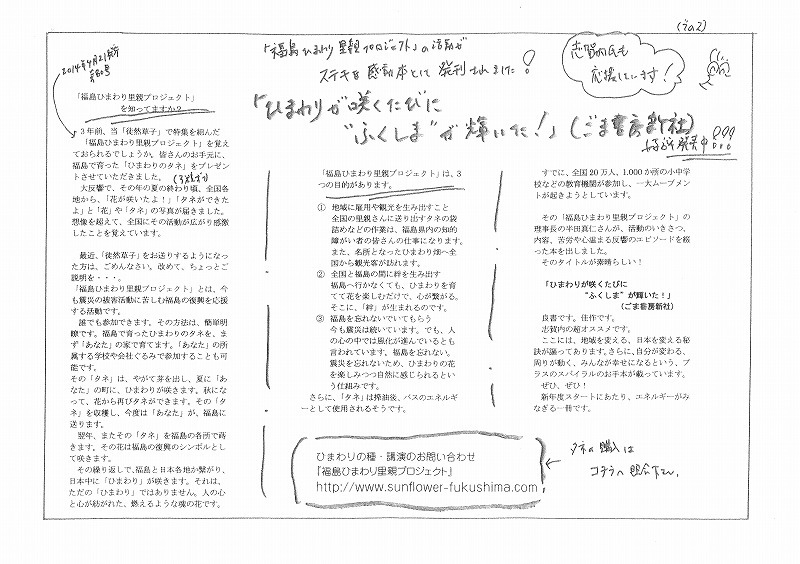 (その2)
「福島ひまわり里親プロジェクト」の活動が
ステキな感動本として発刊されました!
志賀内氏も
応援しています!
「ひまわりが咲くたびに
"ふくしま"が輝いた!」(ごま書房新社)
好評発売中!!!
2014年4月21日
「福島ひまわり里親プロジェクト」
を知ってますか?
3年前、当「徒然草子」で特集を組んだ
「福島ひまわり里親プロジェクト」を覚えて
おられるでしょうか。皆さんのお手元に、
福島で育った「ひまわりのタネ」をプレゼン
トさせていただきました。
大反響で、その年の夏の終わり頃、全国各
地から、「花が咲いたよ!」「タネができた
よ」と「花」や「タネ」の写真が届きました。
想像を超えて、全国にその活動が広がり感激
したことを覚えています。
最近、「徒然草子」をお送りするようになっ
た方は、ごめんなさい。改めて、ちょっとご
説明を・・・。
「福島ひまわり里親プロジェクト」とは、今
も震災の被害活動に苦しむ福島の復興を応援
する活動です。
誰でも参加できます。その方法は、簡単明
瞭です。福島で育ったひまわりのタネを、ま
ず「あなた」の家で育てます。「あなた」の所
属する学校や会社ぐるみで参加することも可
能です。
その「タネ」は、やがて芽を出し、夏に「あ
なた」の町に、ひまわりが咲きます。秋にな
って、花から再びタネができます。その「タ
ネ」を収穫し、今度は「あなた」が、福島に
送ります。
翌年、またその「タネ」を福島の各所で蒔
きます。その花は福島の復興のシンボルとし
て咲きます。
その繰り返しで、福島と日本各地が繋がり、
日本中に「ひまわり」が咲きます。それは、
ただの「ひまわり」ではありません。人の心
と心が紡がれた、燃えるような魂の花です。
「福島ひまわり里親プロジェクト」は、3
つの目的があります。
① 地域に雇用や観光を生み出すこと
全国の里親さんに送り出すタネの袋
詰めなどの作業は、福島県内の知的
障がい者の皆さんの仕事になります。
また、名所となったひまわり畑へ全
国から観光客が訪れます。
② 全国と福島の間に絆を生み出す
福島へ行かなくても、ひまわりを育
てて花を楽しむだけで、心が繋がる。
そこに、「絆」が生まれるのです。
③ 福島を忘れないでいてもらう
今も震災は続いています。でも、人
の心の中では風化が進んでいるとも
言われています。福島を忘れない。
震災を忘れないため、ひまわりの花
を楽しみつつ自然に感じられるとい
う仕組みです。
さらに、「タネ」は搾油後、バスのエネルギ
ーとして使用されるそうです。
すでに、全国20万人、1,000か所の小中学
校などの教育機関が参加し、一大ムーブメント
が起きようとしています。
その「福島ひまわり里親プロジェクト」の
理事長の半田真仁さんが、活動のいきさつ、
内容、苦労や心温まる反響のエピソードを綴
った本を出しました。
そのタイトルが素晴らしい!
「ひまわりが咲くたびに
"ふくしま"が輝いた!」
(ごま書房新社)
良書です。佳作です。
志賀内の超オススメです。
ここには、地域を変える、日本を変える秘
訣が詰まってあります。さらに、自分が変わる、
周りが動く、みんなが幸せになるという、プ
ラスのスパイラルのお手本が載っています。
ぜひ、ぜひ!
新年度スタートにあたり、エネルギーがみ
なぎる一冊です。
ひまわりの種・講演のお問い合わせ
『福島ひまわり里親プロジェクト』
http://www.sunflower-fukushima.com
タネの購入は
コチラへ照会下さい。